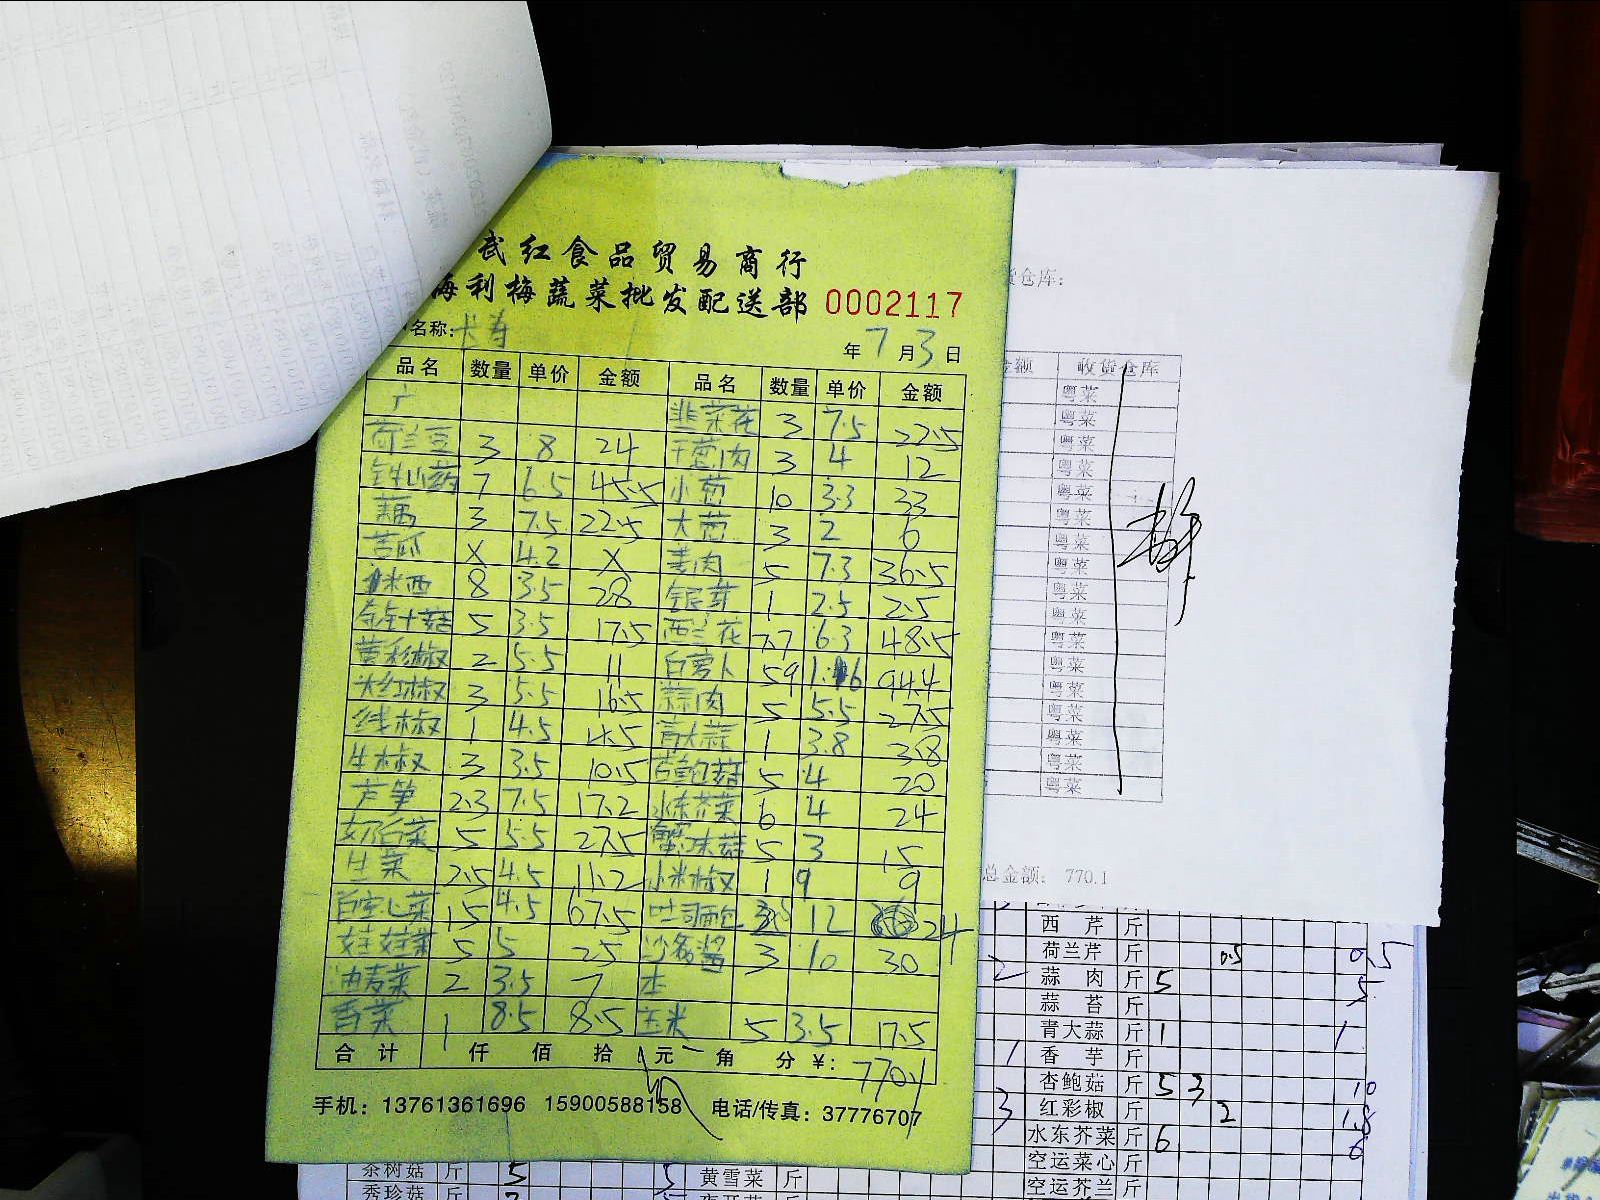 武红食品贸易商行
海利梅蔬菜批发配送部 0002117
名称: 年 7 月 3 日
品名 数量 单价 金额 品名 数量 单价 金额
韭菜花 3 7.5 22.5
荷兰豆 3 8 24 干葱肉 3 4 12
铁山药 7 6.5 45.5 小葱 10 3.3 33
藕 3 7.5 22.5 大葱 3 2 6
苦瓜 X 4.2 X 姜肉 5 7.3 36.5
西 8 3.5 28 银芽 1 2.5 2.5
金针菇 5 3.5 17.5 西兰花 7.7 6.3 48.5
黄彩椒 2 5.5 11 白萝卜 59 1.6 94.4
大红椒 3 5.5 16.5 蒜肉 5 5.5 27.5
线椒 1 4.5 4.5 青大蒜 1 3.8 3.8
牛椒 3 3.5 10.5 杏鲍菇 5 4 20
芦笋 2.3 7.5 17.2 水东芥菜 6 4 24
奶白菜 5 5.5 27.5 蟹味菇 5 3 15
生菜 2.5 4.5 11.2 小米椒 1 9 9
白空心菜 15 4.5 67.5 吐司面包 12 24
娃娃菜 5 5 25 沙爹酱 3 10 30
油麦菜 2 3.5 7 本
香菜 1 8.5 8.5 玉米 5 3.5 17.5
合计 仟 佰 拾 元 角 分 ¥: 770.1
手机: 13761361696 15900588158 电话/传真: 37776707
仓库:
金额 收货仓库
粤菜
粤菜
粤菜
粤菜
粤菜
粤菜
粤菜
粤菜
粤菜
粤菜
粤菜
粤菜
粤菜
粤菜
粤菜
粤菜
粤菜
总金额: 770.1
西芹 斤
荷兰芹 斤 0.5 0.5
2 蒜肉 斤 5 5
蒜苔 斤
青大蒜 斤 1 1
1 香芋 斤
杏鲍菇 斤 5 3 10
3 红彩椒 斤 2 1.8
水东芥菜 斤 6 6
空运菜心 斤
空运芥兰 斤
茶树菇 斤 5 5 黄雪菜 斤
秀珍菇 斤